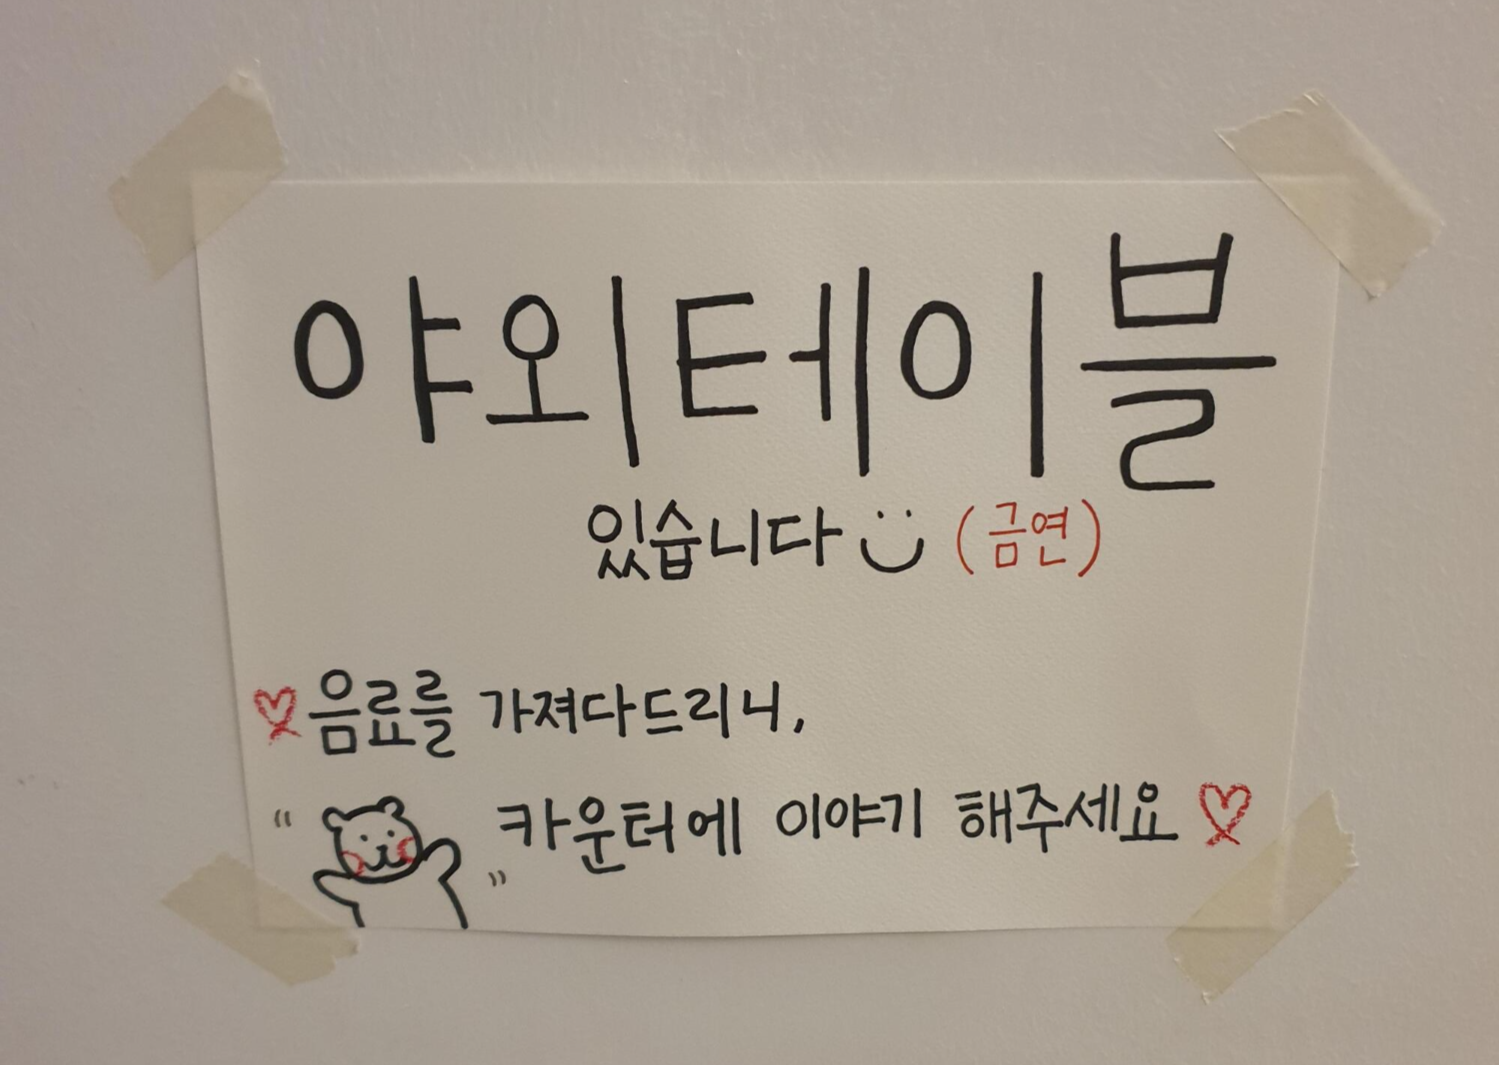 야외테이블
있습니다 (금연)
음료를 가져다드리니,
“ ” 카운터에 이야기 해주세요